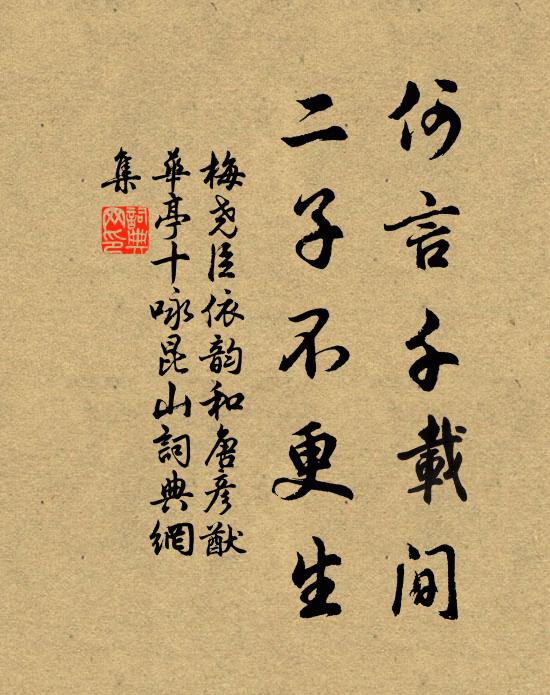 何言千載間
二子不更生
梅堯臣依韵和唐彦猷
華亭十咏昆山詞典網
集
詞典
网印